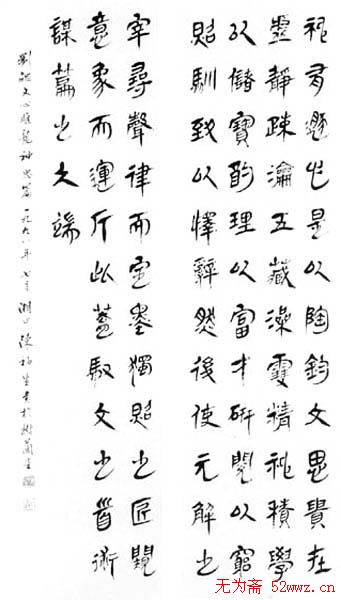 神有遯心是以陶鈞文思貴在
虛靜疏瀹五藏澡雪精神積學
以儲寶酌理以富才研閱以窮
照馴致以懌辭然後使元解之
宰尋聲律而定墨獨照之匠闚
意象而運斤此蓋馭文之首術
謀篇之大端
劉勰文心雕龍神思篇一九九八年七月陳初生書於
无为斋 52wwz.cn